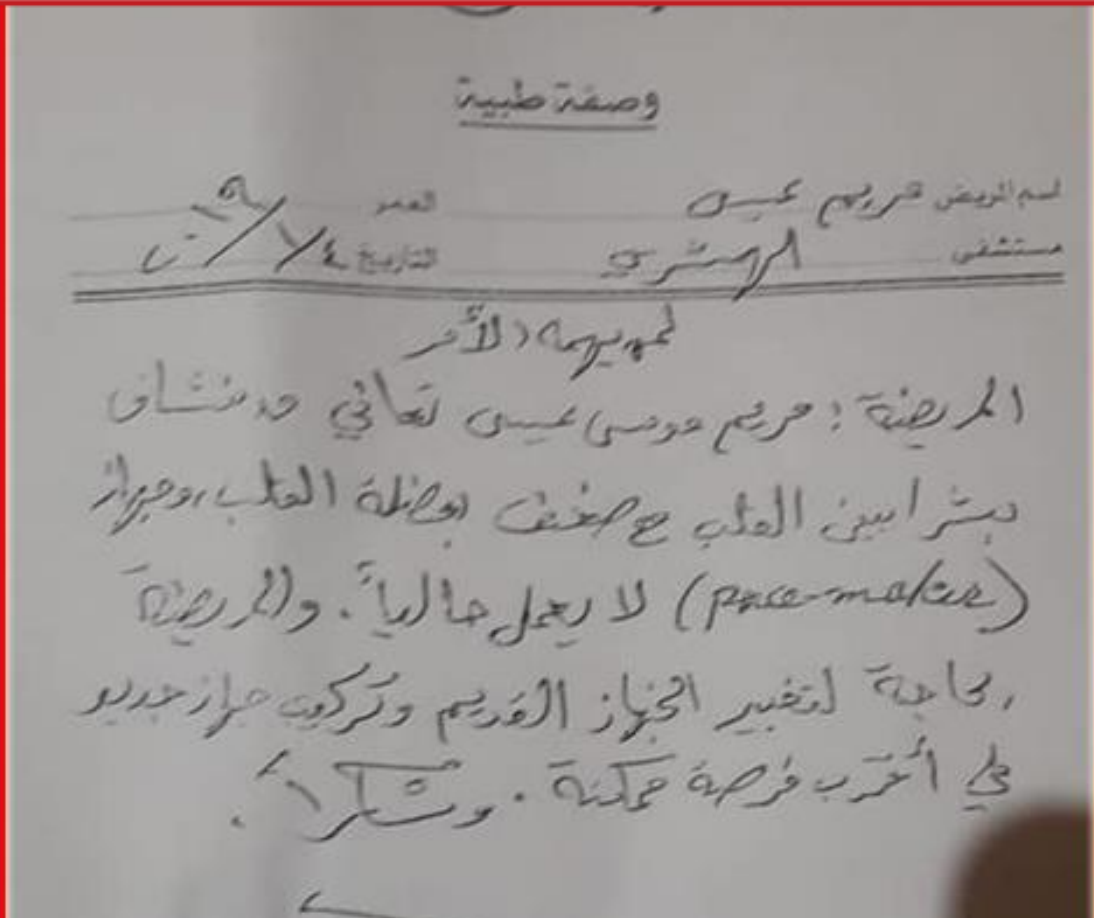 وصفة طبية
اسم المريض مريم عيسى العمر
مستشفى الهمشري التاريخ
لمن يهمه الأمر
المريضة: مريم موسى عيسى تعاني من نشاف
بشرايين القلب مع ضعف بعضلة القلب، وجهاز
(pace-maker) لا يعمل حالياً. والمريضة
بحاجة لتغيير الجهاز القديم وتركيب جهاز جديد
في أقرب فرصة ممكنة. وشكراً.